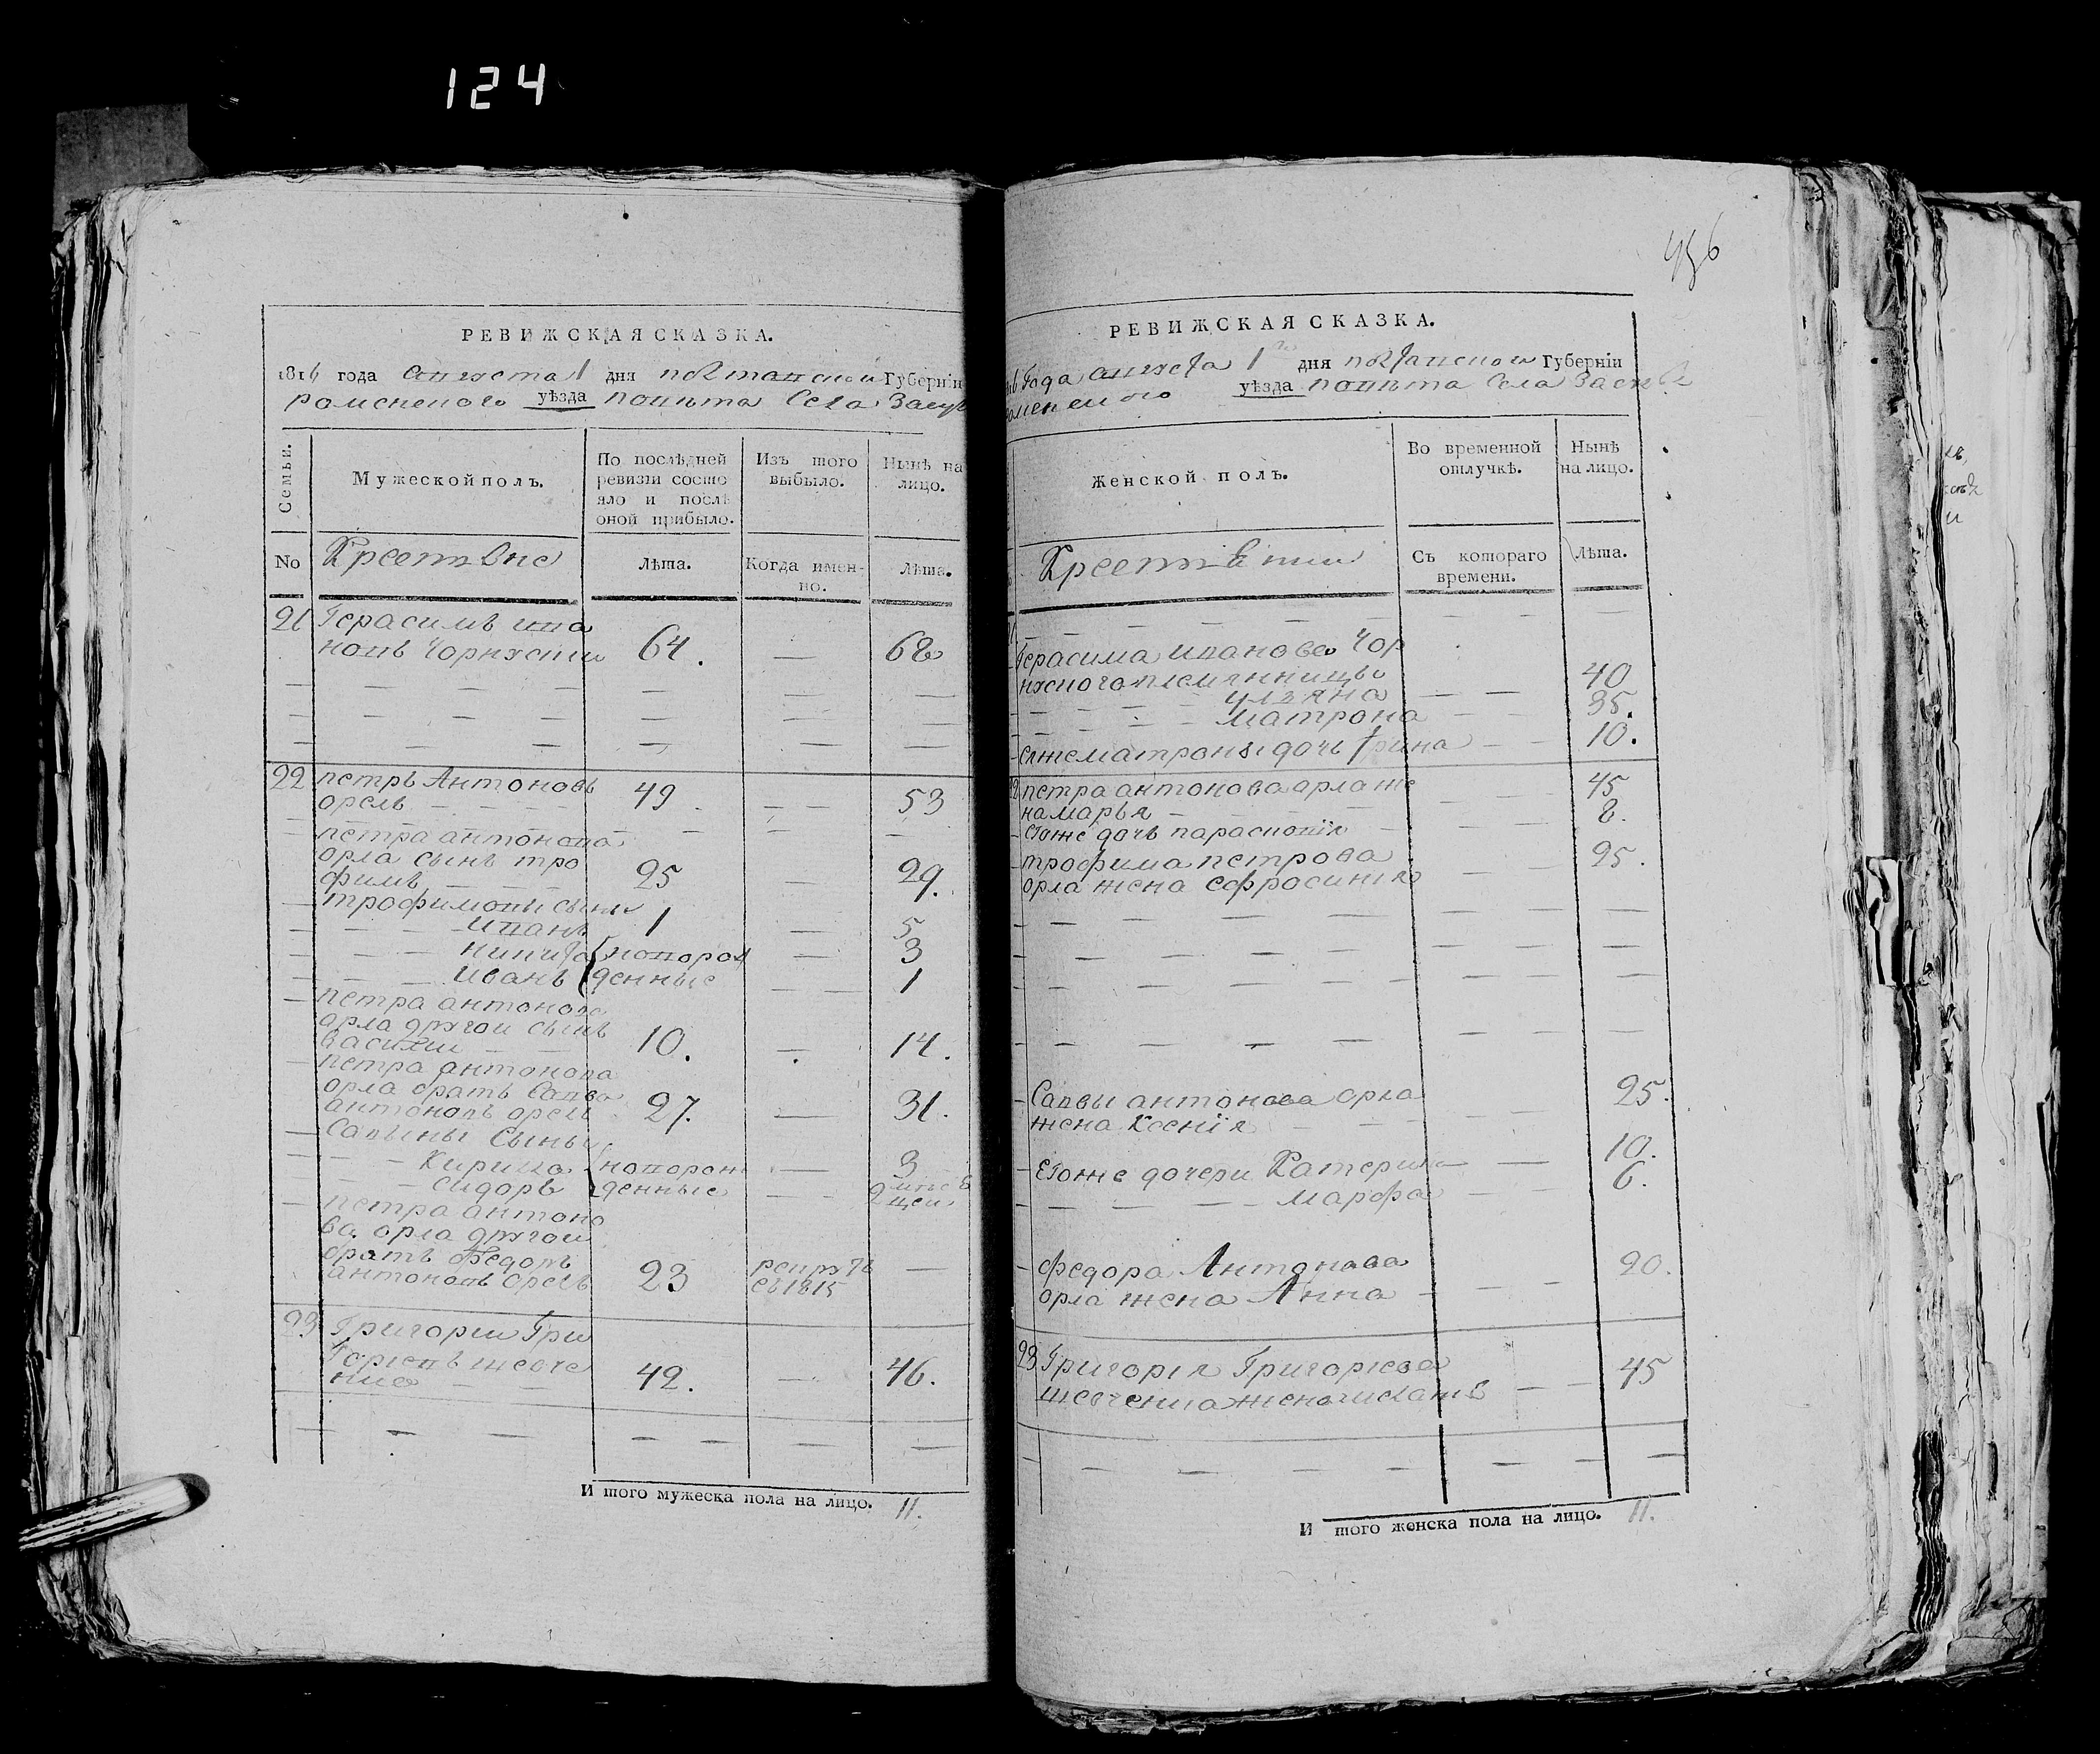 124
РЕВИЖСКАЯ СКАЗКА.
1816 года августа 1 дня полтавской Губерніи
роменского уѣзда повѣта села
Семьи.
Мужеской полъ.
По послѣдней ревизіи состояло и послѣ оной прибыло.
Изъ того выбыло.
Нынѣ на лицо.
No
Крестяне
Лѣта.
Когда именно.
Лѣта.
21 Герасимъ ива
новъ Чорнуский 64. — 68
22 петръ Антоновъ
орелъ 49 — 53
петра антонова
орла сынъ тро
фимъ 25 — 29.
трофимовы сыны
иванъ 1 — 5
никита новорож — 3
иванъ денные — 1
петра антонова
орла другой сынъ
василий 10. — 14.
петра антонова
орла братъ Савва
антоновъ орелъ 27. — 31.
Савины сыны
Кирило новорож — 3
сидоръ денные 2
петра антоно
ва орла другой
братъ Федоръ
антоновъ орелъ 23 рекрут
въ 1815 —
23 Григорий Гри
горіевъ шевче
нко 42. — 46.
И того мужеска пола на лицо. 11.
456
РЕВИЖСКАЯ СКАЗКА.
года августа 1го дня полтавской Губерніи
роменского уѣзда повѣта села
Женской полъ.
Во временной отлучкѣ.
Нынѣ на лицо.
Крестянки
Съ котораго времени.
Лѣта.
Герасима иванова Чор
нуского племянницы
уляна 40
матрона 35.
сеяже матроны дочь Ирина 10.
22 петра антонова орла же
на марья 45
егоже дочь парасковія 8.
трофима петрова
орла жена ефросинія 25.
Саввы антонова орла
жена Ксенія 25.
Егоже дочери Катерина 10.
марфа 6.
федора Антонова
орла жена Анна 20.
23 Григорія Григоріева
шевченка жена 45
И того женска пола на лицо. 11.